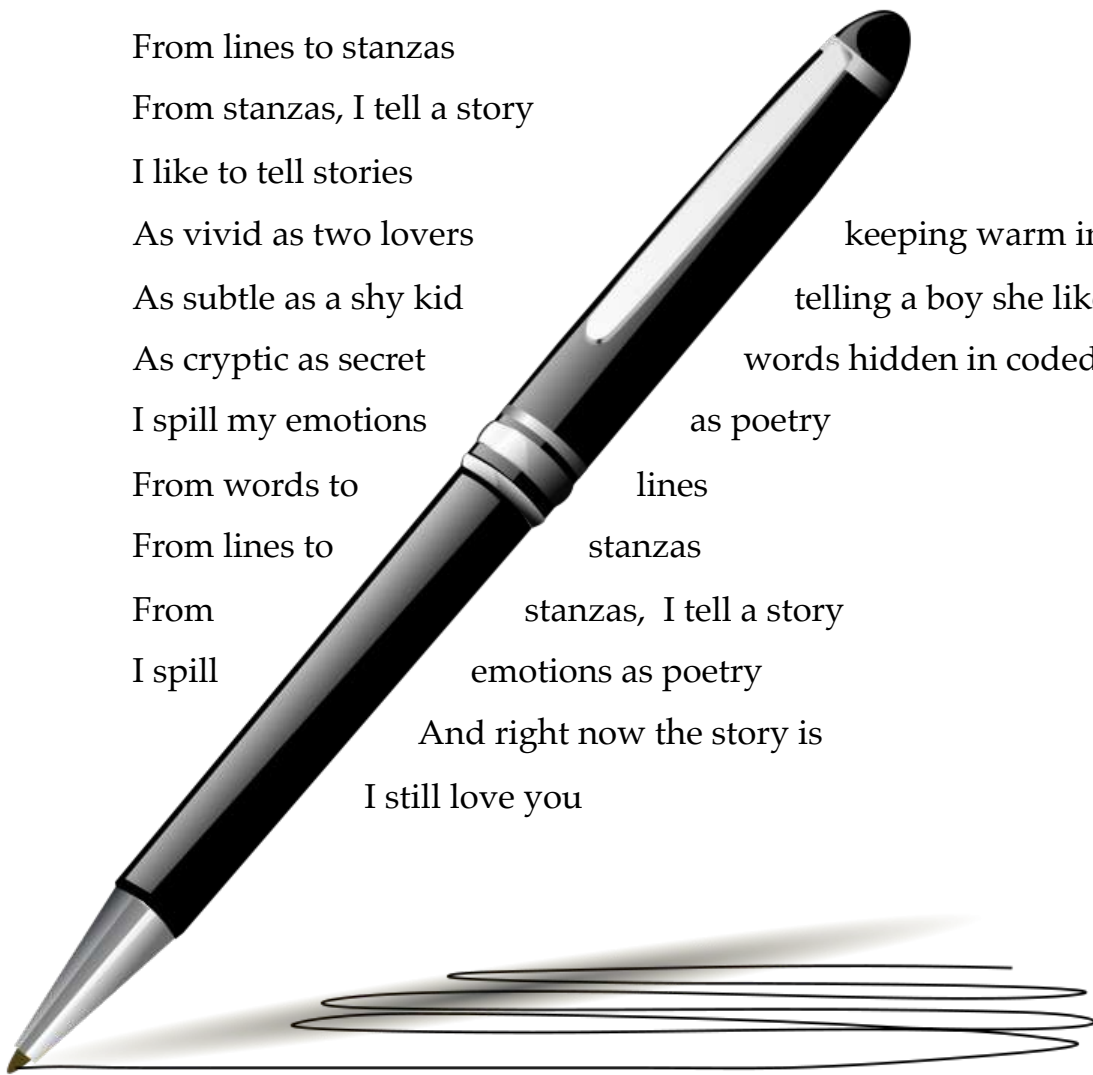 From lines to stanzas
From stanzas, I tell a story
I like to tell stories
As vivid as two lovers keeping warm
As subtle as a shy kid telling a boy she
As cryptic as secret words hidden in coded
I spill my emotions as poetry
From words to lines
From lines to stanzas
From stanzas, I tell a story
I spill emotions as poetry
And right now the story is
I still love you